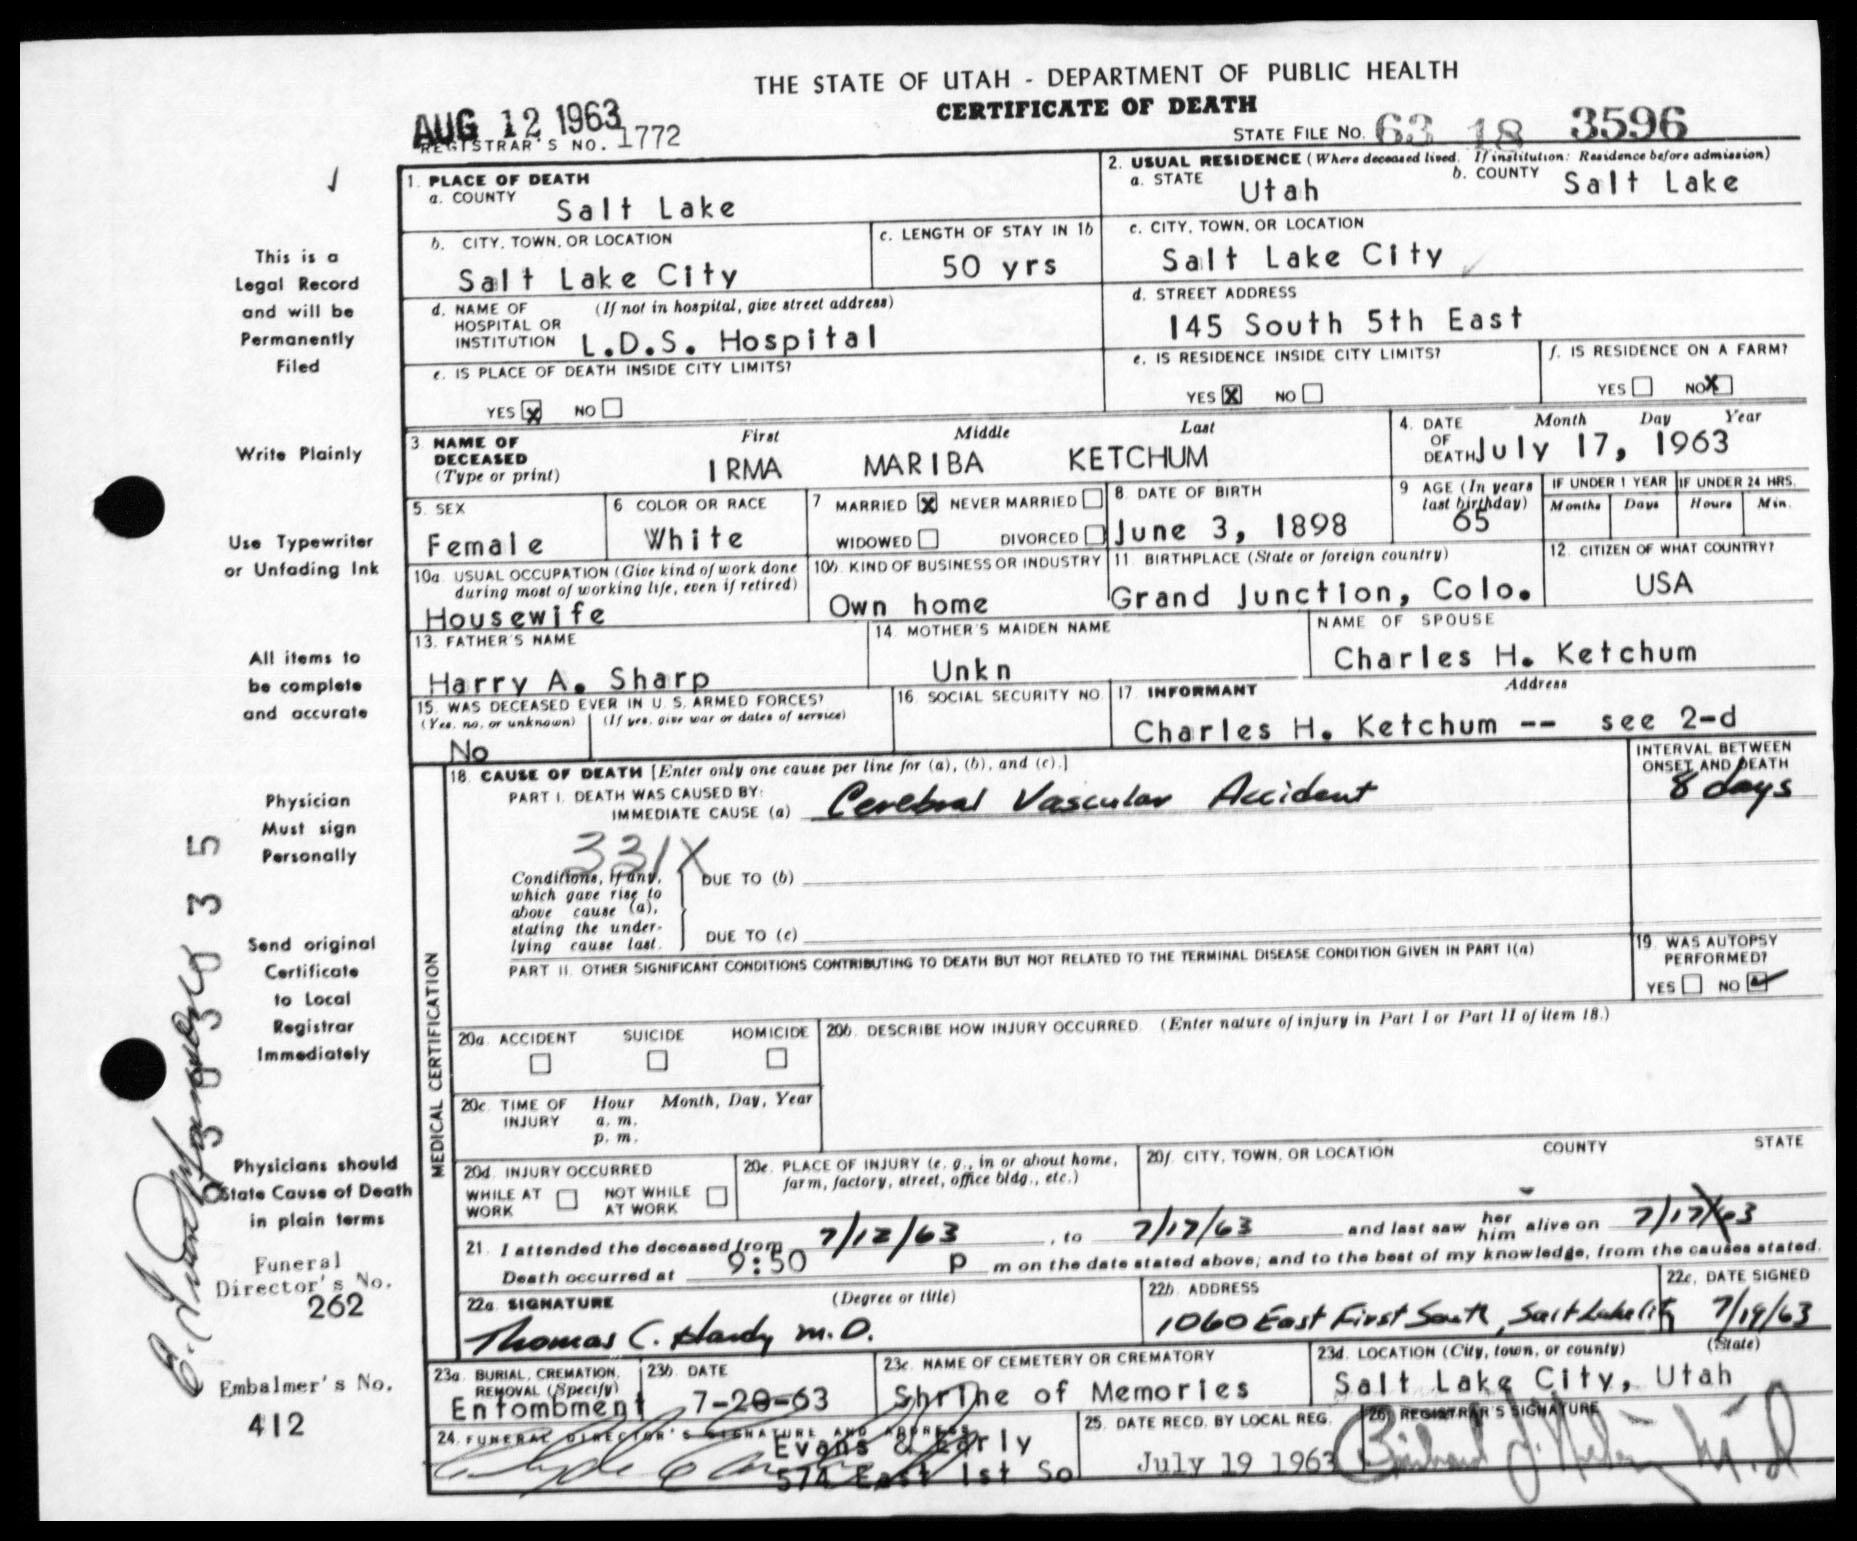 THE STATE OF UTAH - DEPARTMENT OF PUBLIC HEALTH
CERTIFICATE OF DEATH
AUG 12 1963
REGISTRAR'S NO. 1772
STATE FILE NO. 63 18 3596
1. PLACE OF DEATH
a. COUNTY Salt Lake
2. USUAL RESIDENCE (Where deceased lived. If institution: Residence before admission)
a. STATE Utah b. COUNTY Salt Lake
b. CITY, TOWN, OR LOCATION
Salt Lake City
c. LENGTH OF STAY IN 1b
50 yrs
c. CITY, TOWN, OR LOCATION
Salt Lake City
d. NAME OF HOSPITAL OR INSTITUTION (If not in hospital, give street address)
L.D.S. Hospital
d. STREET ADDRESS
145 South 5th East
e. IS PLACE OF DEATH INSIDE CITY LIMITS?
YES X NO
e. IS RESIDENCE INSIDE CITY LIMITS?
YES X NO
f. IS RESIDENCE ON A FARM?
YES NO X
3. NAME OF DECEASED (Type or print)
First Middle Last
IRMA MARIBA KETCHUM
4. DATE OF DEATH Month Day Year
July 17, 1963
5. SEX
Female
6 COLOR OR RACE
White
7 MARRIED X NEVER MARRIED
WIDOWED DIVORCED
8. DATE OF BIRTH
June 3, 1898
9 AGE (In years last birthday)
65
IF UNDER 1 YEAR
Months Days
IF UNDER 24 HRS.
Hours Min.
10a. USUAL OCCUPATION (Give kind of work done during most of working life, even if retired)
Housewife
10b. KIND OF BUSINESS OR INDUSTRY
Own home
11. BIRTHPLACE (State or foreign country)
Grand Junction, Colo.
12. CITIZEN OF WHAT COUNTRY?
USA
13. FATHER'S NAME
Harry A. Sharp
14. MOTHER'S MAIDEN NAME
Unkn
NAME OF SPOUSE
Charles H. Ketchum
15. WAS DECEASED EVER IN U. S. ARMED FORCES?
(Yes, no, or unknown) (If yes, give war or dates of service)
No
16. SOCIAL SECURITY NO.
17. INFORMANT Address
Charles H. Ketchum -- see 2-d
MEDICAL CERTIFICATION
18. CAUSE OF DEATH [Enter only one cause per line for (a), (b), and (c).]
PART I. DEATH WAS CAUSED BY:
IMMEDIATE CAUSE (a) Cerebral Vascular Accident
INTERVAL BETWEEN ONSET AND DEATH
8 days
331X
Conditions, if any, which gave rise to above cause (a), stating the underlying cause last.
DUE TO (b)
DUE TO (c)
PART II. OTHER SIGNIFICANT CONDITIONS CONTRIBUTING TO DEATH BUT NOT RELATED TO THE TERMINAL DISEASE CONDITION GIVEN IN PART I(a)
19. WAS AUTOPSY PERFORMED?
YES NO
20a. ACCIDENT SUICIDE HOMICIDE
20b. DESCRIBE HOW INJURY OCCURRED. (Enter nature of injury in Part I or Part II of item 18.)
20c. TIME OF INJURY Hour Month, Day, Year
a. m.
p. m.
20d. INJURY OCCURRED
WHILE AT WORK NOT WHILE AT WORK
20e. PLACE OF INJURY (e. g., in or about home, farm, factory, street, office bldg., etc.)
20f. CITY, TOWN, OR LOCATION COUNTY STATE
21. I attended the deceased from 7/12/63, to 7/17/63 and last saw her him alive on 7/17/63
Death occurred at 9:50 P m on the date stated above; and to the best of my knowledge, from the causes stated.
22a. SIGNATURE (Degree or title)
Thomas C. Hardy M.D.
22b. ADDRESS
1060 East First South, Salt Lake City
22c. DATE SIGNED
7/19/63
23a. BURIAL, CREMATION, REMOVAL (Specify)
Entombment
23b. DATE
7-20-63
23c. NAME OF CEMETERY OR CREMATORY
Shrine of Memories
23d. LOCATION (City, town, or county) (State)
Salt Lake City, Utah
24. FUNERAL DIRECTOR'S SIGNATURE AND ADDRESS
Evans & Early
574 East 1st So
25. DATE RECD. BY LOCAL REG.
July 19 1963
26. REGISTRAR'S SIGNATURE
This is a
Legal Record
and will be
Permanently
Filed
Write Plainly
Use Typewriter
or Unfading Ink
All items to
be complete
and accurate
Physician
Must sign
Personally
Send original
Certificate
to Local
Registrar
Immediately
Physicians should
State Cause of Death
in plain terms
Funeral
Director's No.
262
Embalmer's No.
412